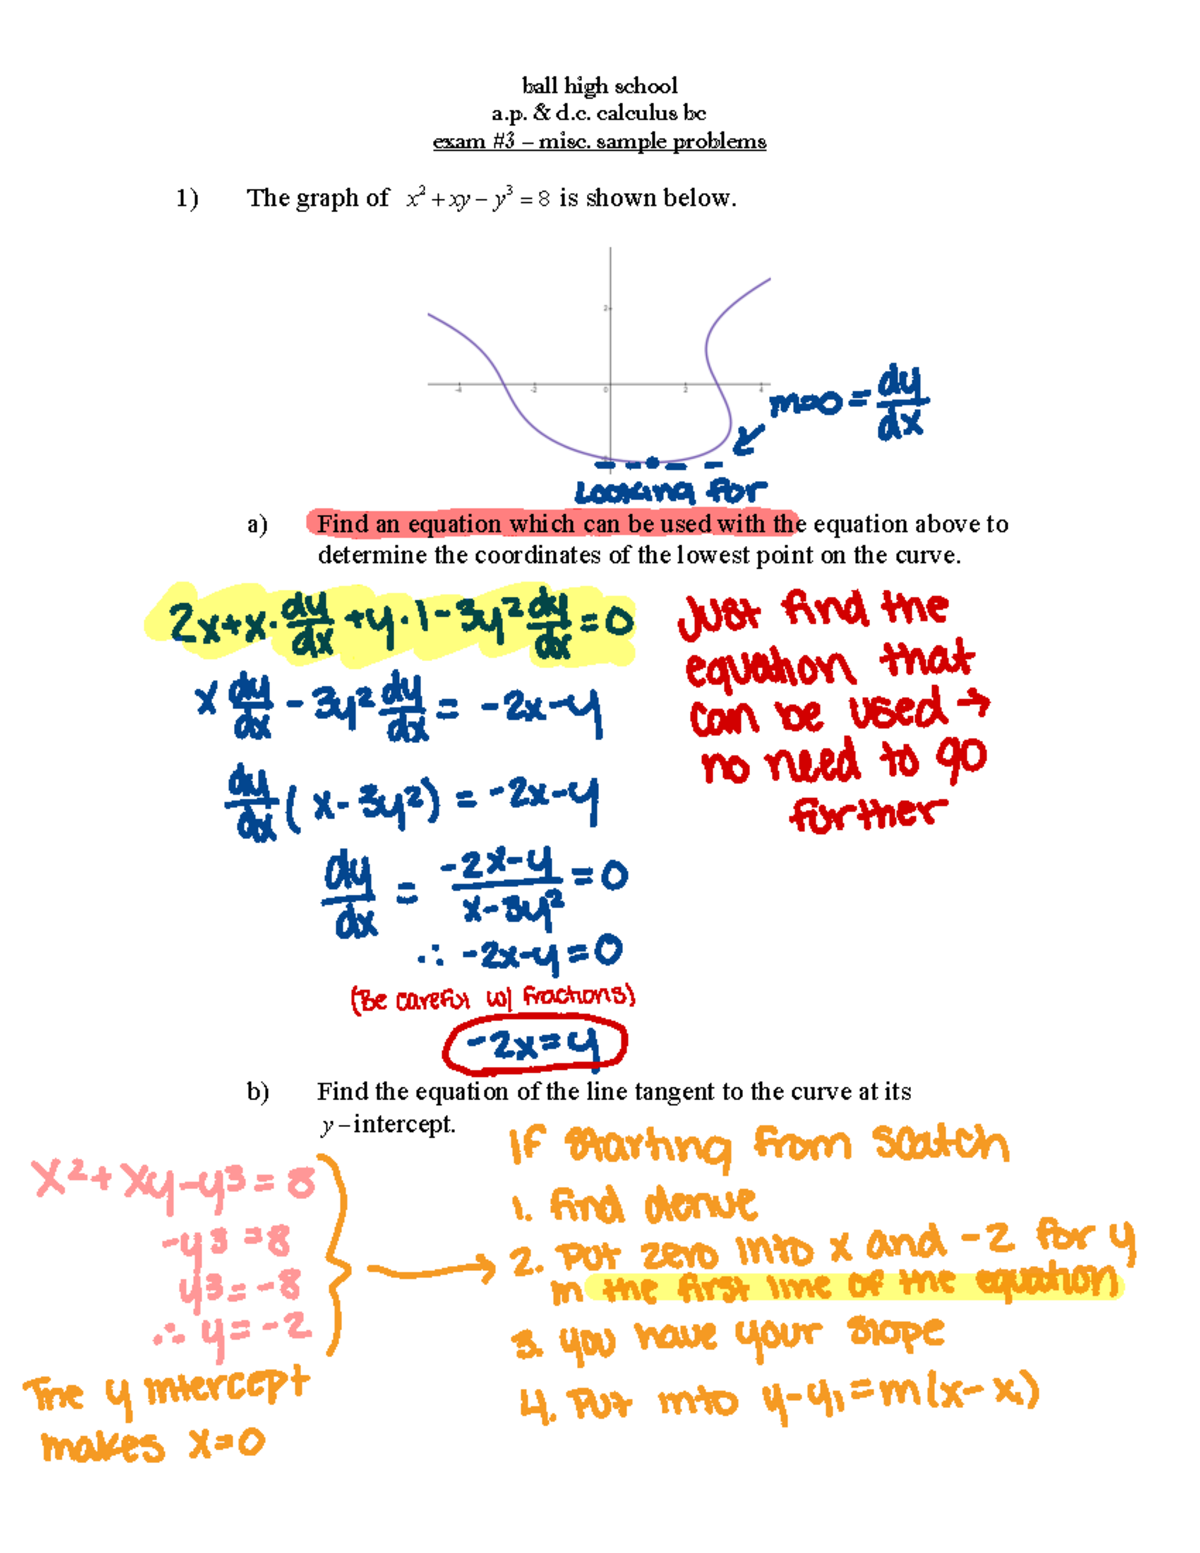 ball high school
a.p. & d.c. calculus bc
exam #3 – misc. sample problems
1) The graph of x² + xy − y³ = 8 is shown below.
2
-4 -2 0 2 4
m=0 = dy/dx
Looking for
a) Find an equation which can be used with the equation above to
determine the coordinates of the lowest point on the curve.
2x+x·dy/dx+y·1-3y²dy/dx=0
x dy/dx - 3y² dy/dx = -2x-y
dy/dx (x-3y²) = -2x-y
dy/dx = -2x-y/x-3y² = 0
∴ -2x-y=0
(Be careful w/ fractions)
-2x=y
Just find the
equation that
can be used →
no need to go
further
b) Find the equation of the line tangent to the curve at its
y–intercept.
x²+xy-y³=8
-y³=8
y³=-8
∴ y=-2
The y intercept
makes x=0
If starting from scatch
1. find derive
2. Put zero into x and -2 for y
in the first line of the equation
3. you have your slope
4. Put into y-y₁=m(x-x₁)